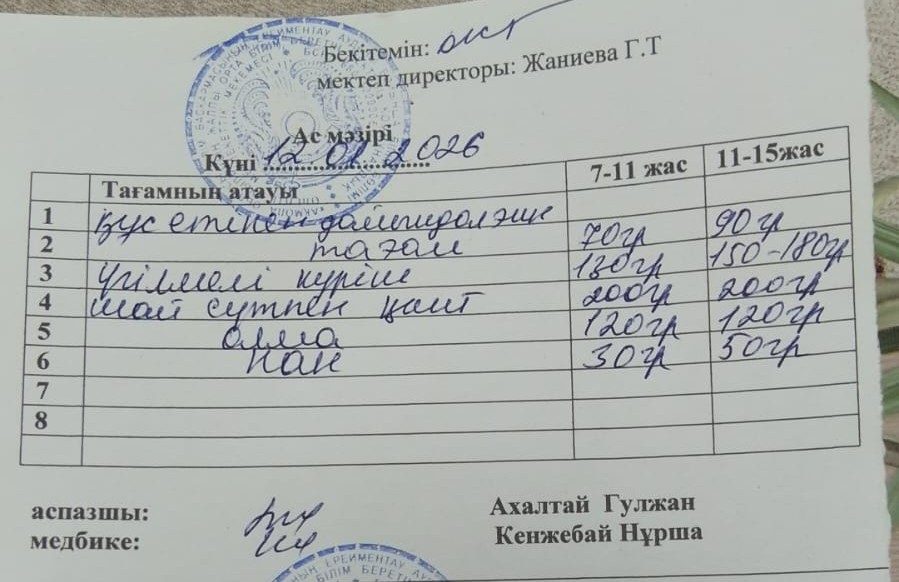 Бекітемін:
мектеп директоры: Жаниева Г.Т
Ас мәзірі
Күні 12.01.2026
Тағамның атауы 7-11 жас 11-15жас
1 Құс етінен дайындалған 70гр 90гр
2 тағам 130гр 150-180гр
3 Үгілмелі күріш 200гр 200гр
4 Шай сүтпен қант 120гр 120гр
5 алма 30гр 50гр
6 нан
7
8
аспазшы: Ахалтай Гулжан
медбике: Кенжебай Нұрша
ЕРЕЙМЕНТАУ
БІЛІМ БЕРЕТІН